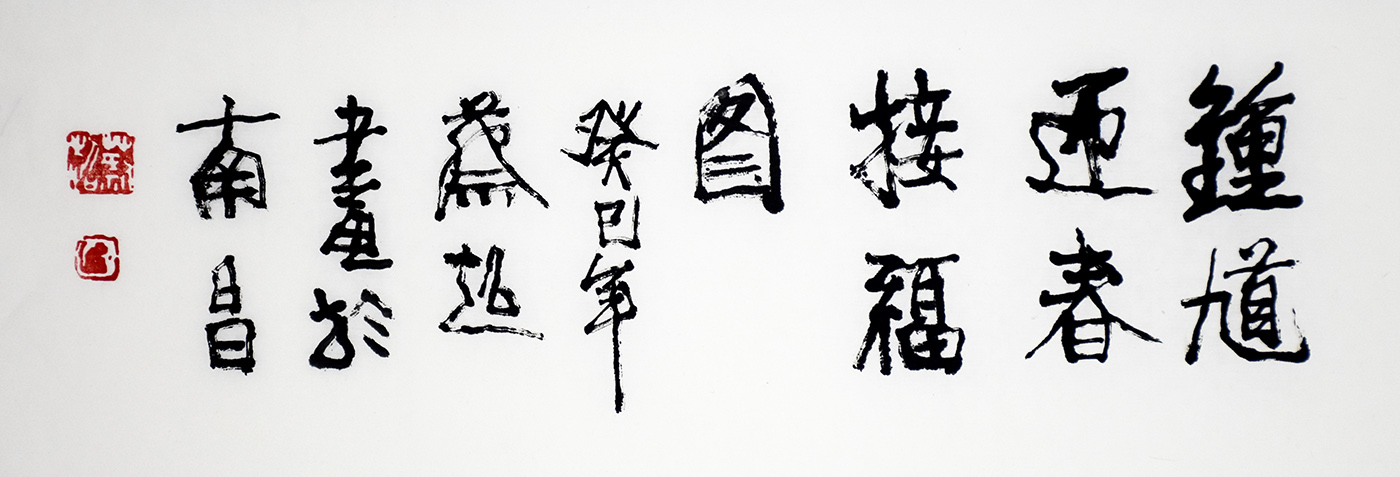 鍾馗
迎春
接福
图
癸巳年
蔡超
畫於
南昌